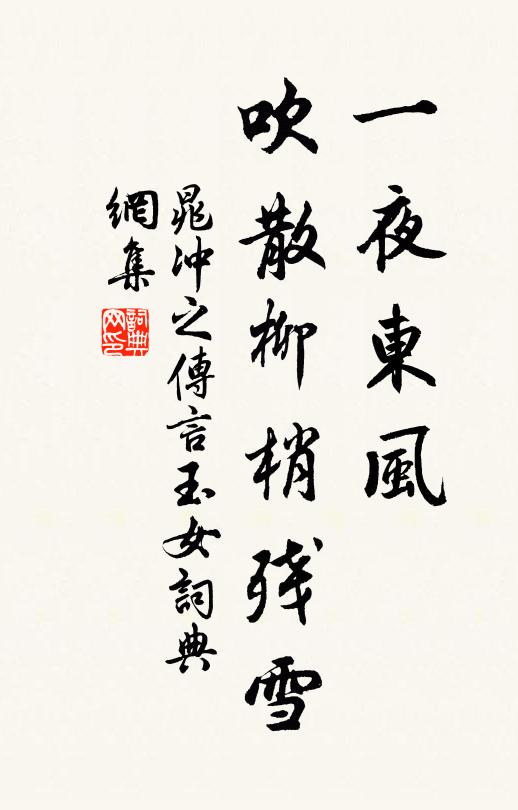 一夜東風
吹散柳梢残雪
晁冲之傳言玉女詞典
網集
詞典
网印